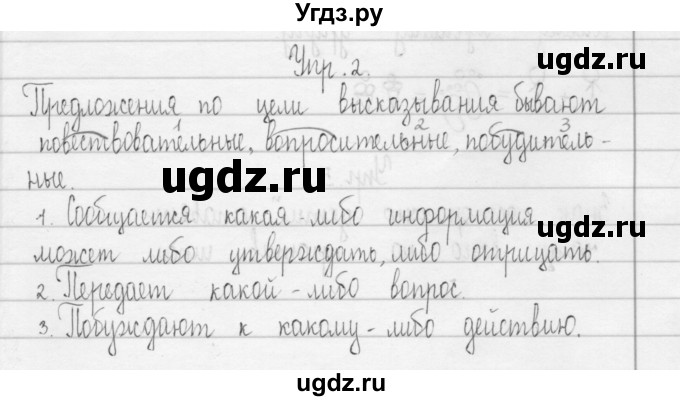 Угдз.ру
Упр. 2
ugdz.ru
Предложения по цели высказывания бывают
ugdz.ru
1 2 3
повествовательные, вопросительные, побудитель-
ugdz.ru
ные.
1. Сообщается какая либо информация
ugdz.ru
может либо утверждать, либо отрицать.
ugdz.ru
2. Передает какой-либо вопрос.
3. Побуждают к какому-либо действию.
ugdz.ru
ugdz.ru